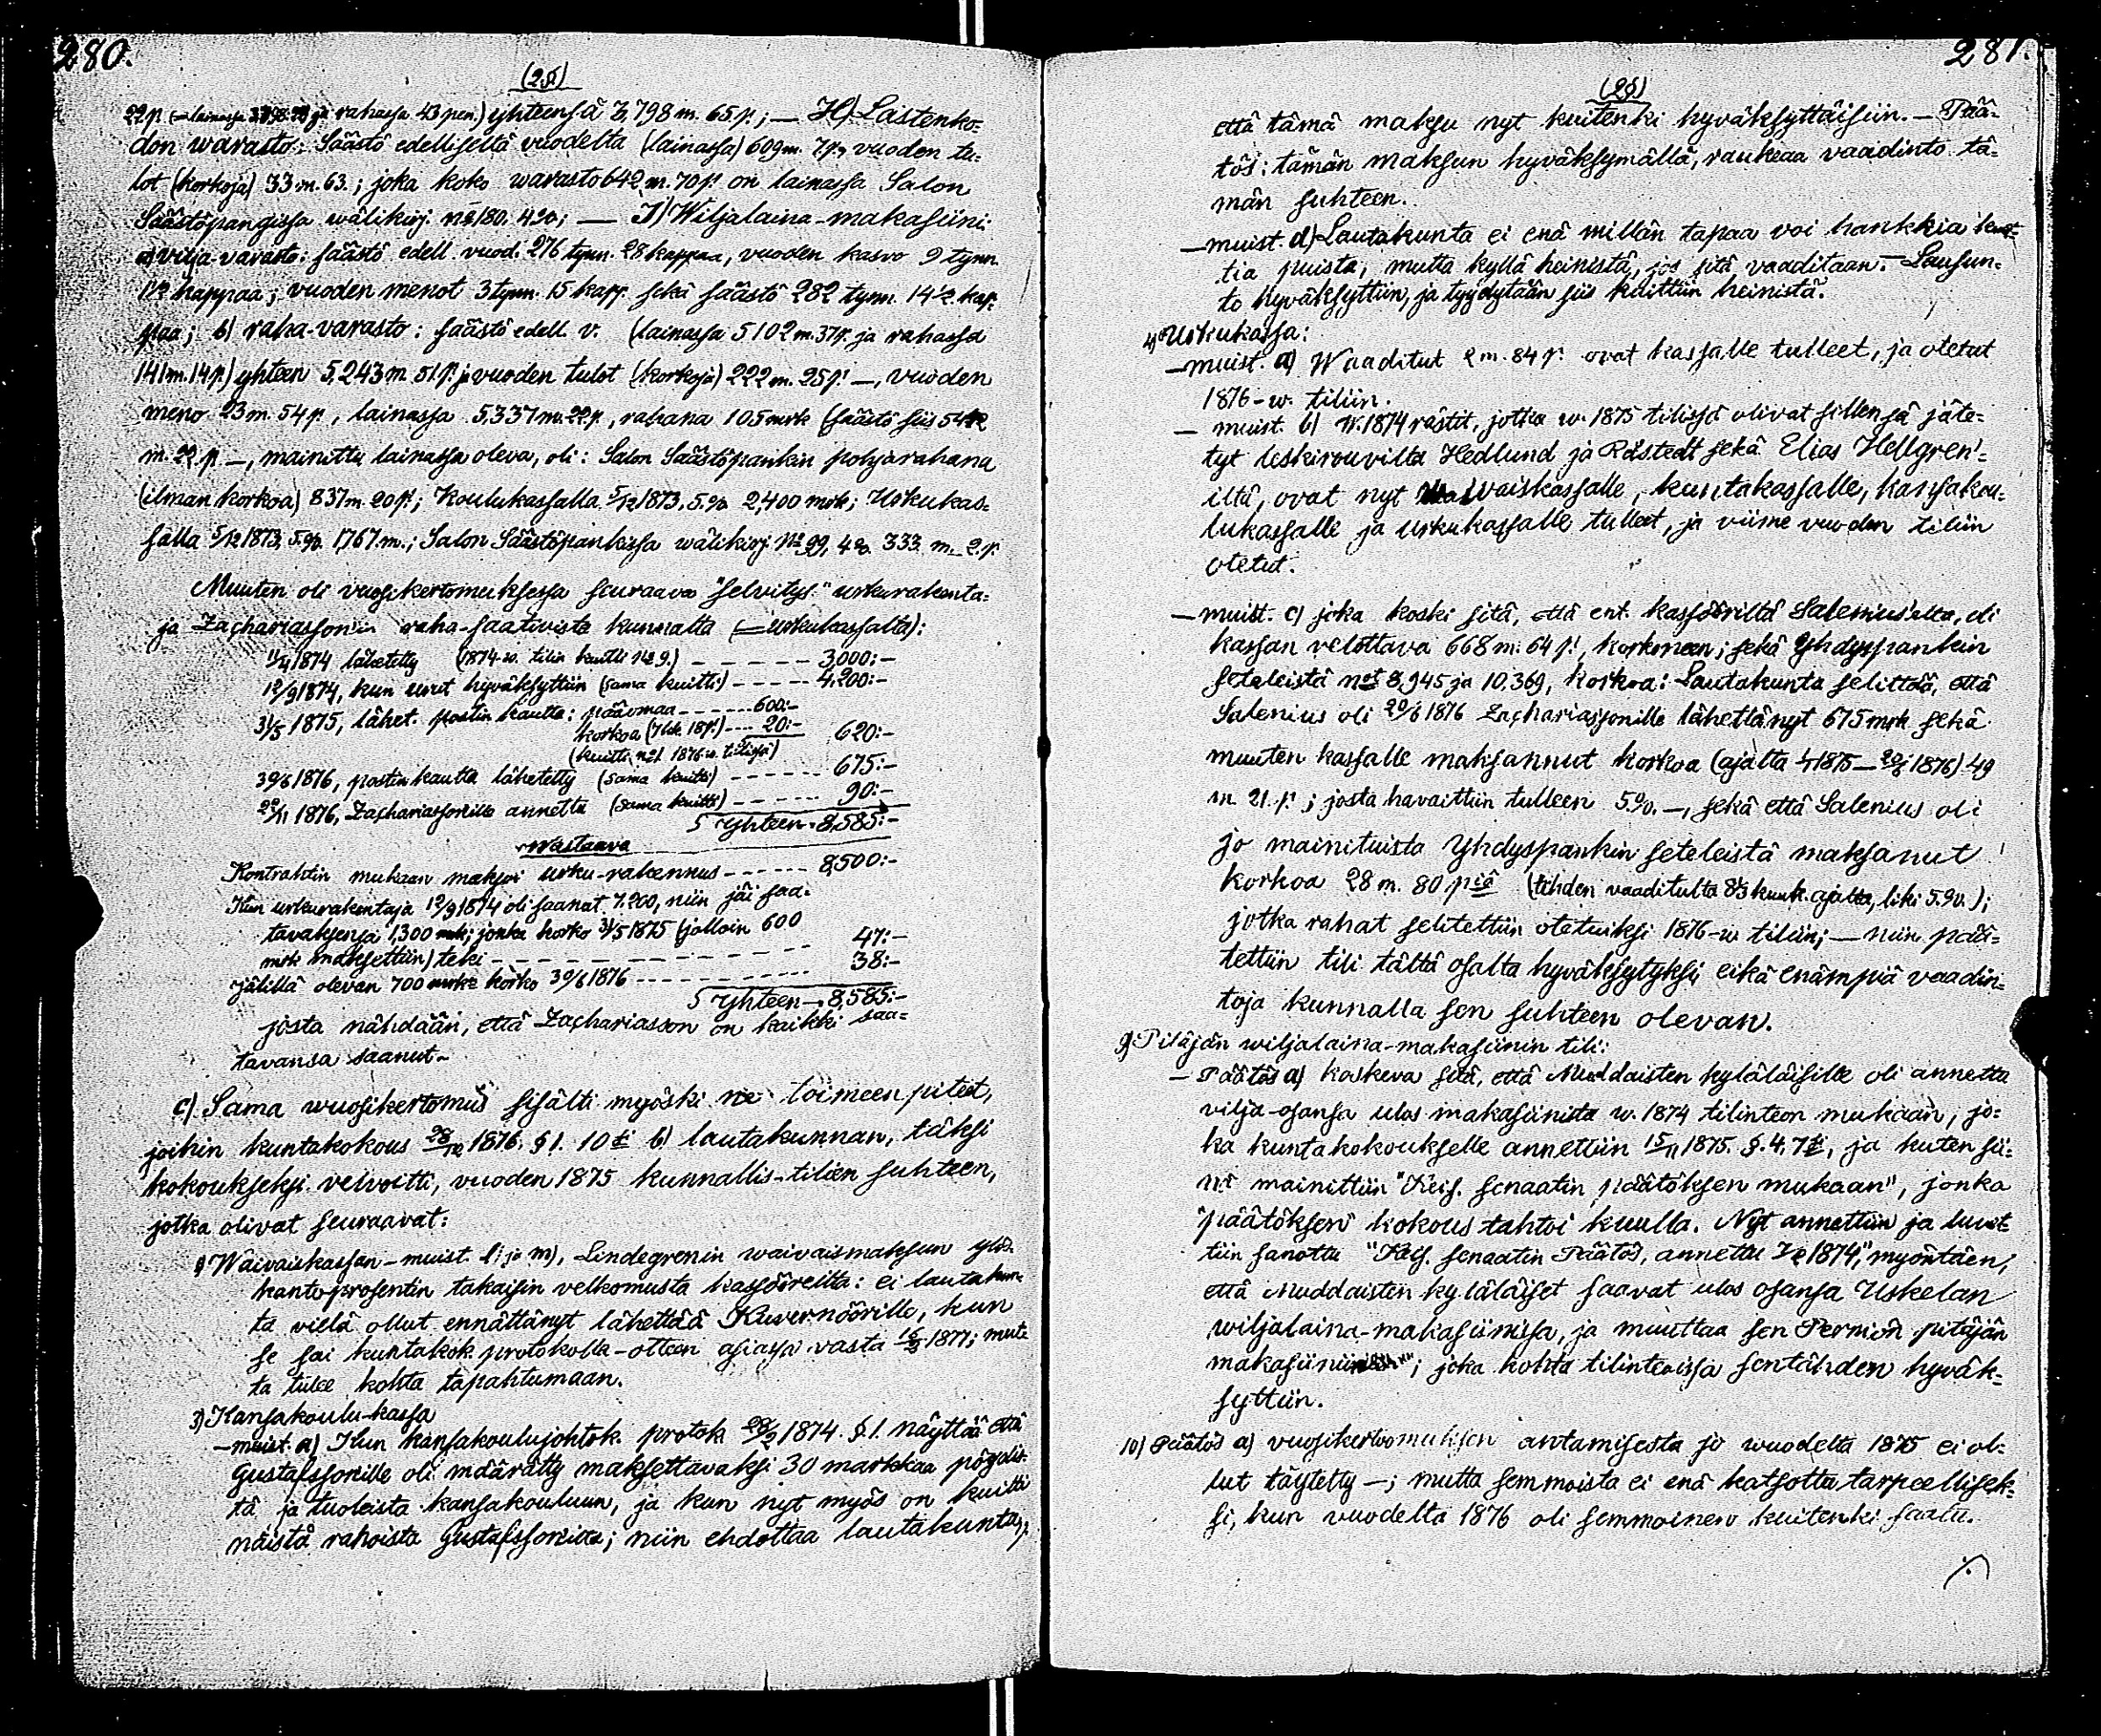 280.
(2§)
22p. (= lainassa 3798.22 ja rahassa 43 pen.) yhteensä 3,798 m. 65 p.; — H) Lastenko=
don warasto: Säästö edelliseltä vuodelta (lainassa) 609 m. 7 p., vuoden tu=
lot (korkoja) 33 m. 63.; joka koko warasto 642 m. 70 p. on lainassa Salon
Säästöpangissa wälikirj. № 180. 4%; — I) Wiljalaina-makasiini:
a) vilja-varasto: säästö edell. vuod. 276 tynn. 28 kappaa, vuoden kasvo 9 tynn.
1½ kappaa; vuoden menot 3 tynn. 15 kapp. sekä säästö 282 tynn. 14½ kap=
paa; b) raha-varasto: säästö edell. v. (lainassa 5102 m. 37 p. ja rahassa
141 m. 14 p.) yhteen 5,243 m. 51 p. ja vuoden tulot (korkoja) 222 m. 25 p. —, vuoden
meno 23 m. 54 p., lainassa 5,337 m. 22 p., rahana 105 mrk (säästö siis 5442
m. 22 p. —, mainittu lainassa oleva, oli: Salon Säästöpankin pohjarahana
(ilman korkoa) 837 m. 20 p.; Koulukassalla 5/12 1873, 5.% 2,400 mrk; Urkukas=
salla 5/12 1873, 5.% 1,767 m.; Salon Säästöpankissa wälikirj. № 99, 4%. 333 m. 2 p.
Muuten oli vuosikertomuksessa seuraava "selvitys" urkurakenta=
ja Zachariassonin raha-saatavista kunnalta (= urkukassalta):
1874 lähetetty (1874-w. tilin kuitti № 9.) - - - - - - 3,000:-
12/9 1874, kun urut hyväksyttiin (sama kuitti) - - - - - 4,200:-
31/5 1875, lähet. postin kautta: pääomaa - - - - - - 600:-
korkoa (7 kk. 18 p.) - - - 20:- 620:-
(kuitti № 1 1876-w. tilissä)
30/6 1876, postin kautta lähetetty (sama kuitti) - - - - - - 675:-
22/11 1876, Zachariassonille annettu (sama kuitti) - - - - - 90:-
S yhteen 8,585:-
Wastaava
Kontrahtin mukaan maksoi urku-rakennus - - - - - - 8,500:-
Kun urkurakentaja 12/9 1874 oli saanut 7,200, niin jäi saa=
tavaksensa 1,300 mk; jonka korko 31/5 1875 (jolloin 600
mrk maksettiin) teki - - - - - - - - - - - - 47:-
jälillä olevan 700 mrk korko 30/6 1876 - - - - - - - - - - 38:-
S yhteen 8,585:-
josta nähdään, että Zachariasson on kaikki saa=
tavansa saanut.
c) Sama wuosikertomus sisälti myöski ne toimeen pitest,
joihin kuntakokous 28/12 1876. § 1. 10 b) lautakunnan, täksi
kokoukseksi velvoitti, vuoden 1875 kunnallis-tilien suhteen,
jotka olivat seuraavat:
1) Waivaiskassan-muist. l: ja m), Lindegrenin waivaismaksun ylös=
kanto-prosentin takaisin velkomusta kassööreiltä: ei lautakun=
ta vielä ollut ennättänyt lähettää Kuvernöörille, kun
se sai kuntakok. protokolla-otteen asiassa vasta 15/3 1877; mut=
ta tulee kohta tapahtumaan.
3) Kansakoulu-kassa
— muist. a) Kun kansakoulujohtok. protok 28/2 1874. § 1. näyttää että
Gustafssonille oli määrätty maksettavaksi 30 markkaa pöydis=
tä ja tuoleista kansakouluun, ja kun nyt myös on kuitti
näistä rahoista Gustafssonilta; niin ehdottaa lautakunta,
281.
(2§)
että tämä maksu nyt kuitenki hyväksyttäisiin. — Pää=
tös: tämän maksun hyväksymällä, raukeaa vaadinto tä=
män suhteen.
— muist. d) Lautakunta ei enä millän tapaa voi hankkia kuit=
tia puista, mutta kyllä heinistä, jos sitä vaaditaan. — Lausun=
to hyväksyttiin, ja tyydytään siis kuittiin heinistä.
4) Urkukassa:
— muist. a) Waaditut 2 m. 84 p. ovat kassalle tulleet, ja otetut
1876-w. tiliin.
— muist. b) W. 1874 rästit, jotka w. 1875 tilissä olivat sillensä jäte=
tyt leskirouvilta Hedlund ja Råstedt sekä Elias Hellgren'=
iltä, ovat nyt waiskassalle, kuntakassalle, kansakou=
lukassalle ja urkukassalle tulleet, ja viime vuoden tiliin
otetut.
— muist. c) joka koski sitä, että ent. kassööriltä Salenius'elta, oli
kassan velottava 668 m. 64 p., korkoneen; sekä Yhdyspankin
seteleistä not 8,945 ja 10,369, korkoa: Lautakunta selittää, että
Salenius oli 20/6 1876 Zachariassonille lähettänyt 675 mrk sekä
muuten kassalle maksannut korkoa (ajalta 1/1 1875 — 20/6 1876) 49
m. 21 p.; josta havaittiin tulleen 5.% —, sekä että Salenius oli
jo mainituista Yhdyspankin seteleistä maksanut
korkoa 28 m. 80 p:iä (tehden vaaditulta 8⅓ kuuk. ajalta, liki 5.%.);
jotka rahat selitettiin otetuiksi 1876-w tiliin; — niin pää=
tettiin tili tältä osalta hyväksytyksi eikä enämpiä vaadin=
toja kunnalla sen suhteen olevan.
9) Pitäjän wiljalaina-makasiinin tili:
— Päätös a) koskeva sitä, että Muddaisten kyläläisille oli annettu
vilja-osansa ulos makasiinista w. 1874 tilinteon mukaan, jo=
ka kuntakokoukselle annettiin 15/11 1875. §. 4. 7, ja kuten sii=
nä mainittiin "Keis. senaatin päätöksen mukaan", jonka
"päätöksen" kokous tahtoi kuulla. Nyt annettiin ja luet=
tiin sanottu "Keis. senaatin Päätös, annettu 1874," myöntäen,
että Muddaisten kyläläiset saavat ulos osansa Uskelan
wiljalaina-makasiinissa, ja muuttaa sen Perniön pitäjän
makasiiniin; joka kohta tilinteoissa sentähden hyväk=
syttiin.
10) Päätös a) vuosikertomuksen antamisesta jo wuodelta 1875 ei ol=
lut täytetty —; mutta semmoista ei enä katsottu tarpeellisek=
si, kun vuodelta 1876 oli semmoinen kuitenki saatu.
./.